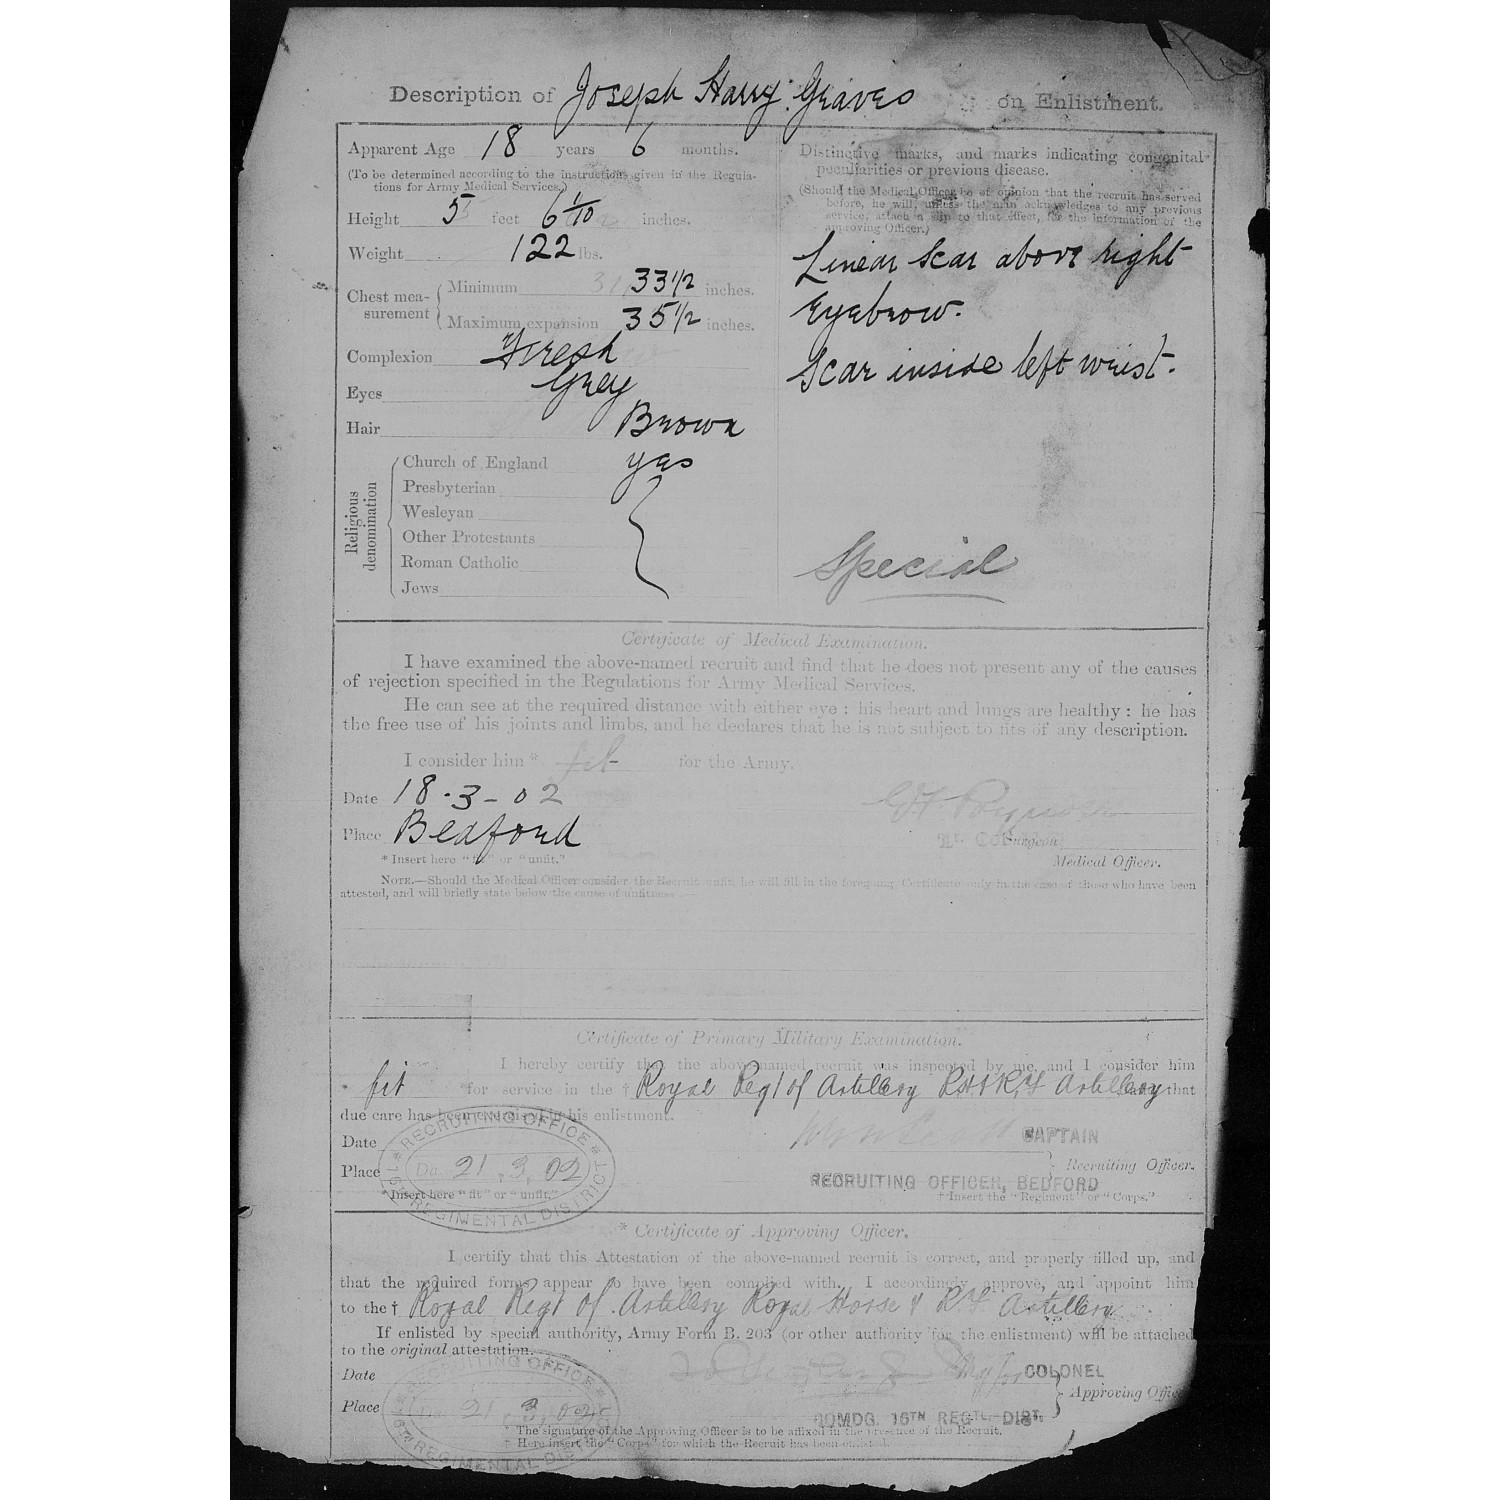 Description of Joseph Harry Graves on Enlistment.
Apparent Age 18 years 6 months.
(To be determined according to the instructions given in the Regula-
tions for Army Medical Services.)
Height 5 feet 6 1/10 inches.
Weight 122 lbs.
Chest mea-
surement
Minimum 33 1/2 inches.
Maximum expansion 35 1/2 inches.
Complexion Fresh
Eyes Grey
Hair Brown
Religious
denomination
Church of England yes
Presbyterian
Wesleyan
Other Protestants
Roman Catholic
Jews
Distinctive marks, and marks indicating congenital
peculiarities or previous disease.
(Should the Medical Officer be of opinion that the recruit has served
before, he will, unless the man acknowledges to any previous
service, attach a slip to that effect, for the information of the
approving Officer.)
Linear scar above right
Eyebrow.
Scar inside left wrist.
Special
Certificate of Medical Examination.
I have examined the above-named recruit and find that he does not present any of the causes
of rejection specified in the Regulations for Army Medical Services.
He can see at the required distance with either eye : his heart and lungs are healthy : he has
the free use of his joints and limbs, and he declares that he is not subject to fits of any description.
I consider him * fit for the Army.
Date 18-3-02
Place Bedford
Lt. Col. Surgeon
Medical Officer.
* Insert here "fit" or "unfit."
NOTE.—Should the Medical Officer consider the Recruit unfit, he will fill in the foregoing Certificate only in the case of those who have been
attested, and will briefly state below the cause of unfitness.—
Certificate of Primary Military Examination.
I hereby certify that the above-named recruit was inspected by me, and I consider him
* fit for service in the † Royal Regt of Artillery RH & R.F Artillery and that
due care has been exercised in his enlistment.
Date
Place
RECRUITING OFFICE
Da. 21.3.02
16TH REGIMENTAL DISTRICT
CAPTAIN
Recruiting Officer.
RECRUITING OFFICER, BEDFORD
* Insert here "fit" or "unfit."
† Insert the "Regiment" or "Corps."
* Certificate of Approving Officer.
I certify that this Attestation of the above-named recruit is correct, and properly filled up, and
that the required forms appear to have been complied with. I accordingly approve, and appoint him
to the † Royal Regt of Artillery Royal Horse & RF Artillery
If enlisted by special authority, Army Form B. 203 (or other authority for the enlistment) will be attached
to the original attestation.
Date
Place
RECRUITING OFFICE
Da. 21.3.02
16TH REGIMENTAL DISTRICT
COLONEL
Approving Offic
COMDG. 16TH REGTL. DIST.
* The signature of the Approving Officer is to be affixed in the presence of the Recruit.
† Here insert the "Corps" for which the Recruit has been enlisted.